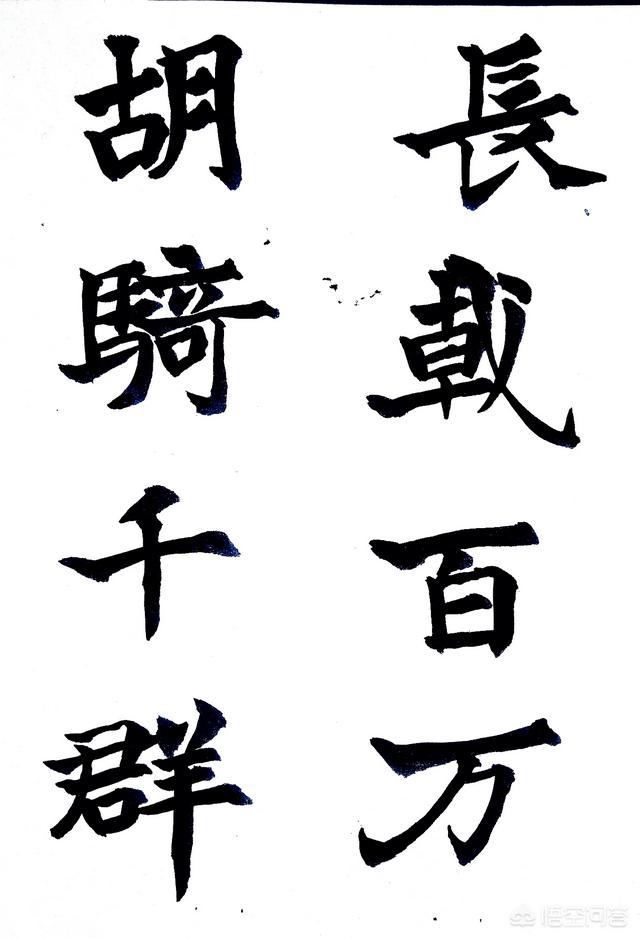 長戟百万
胡騎千群
悟空问答